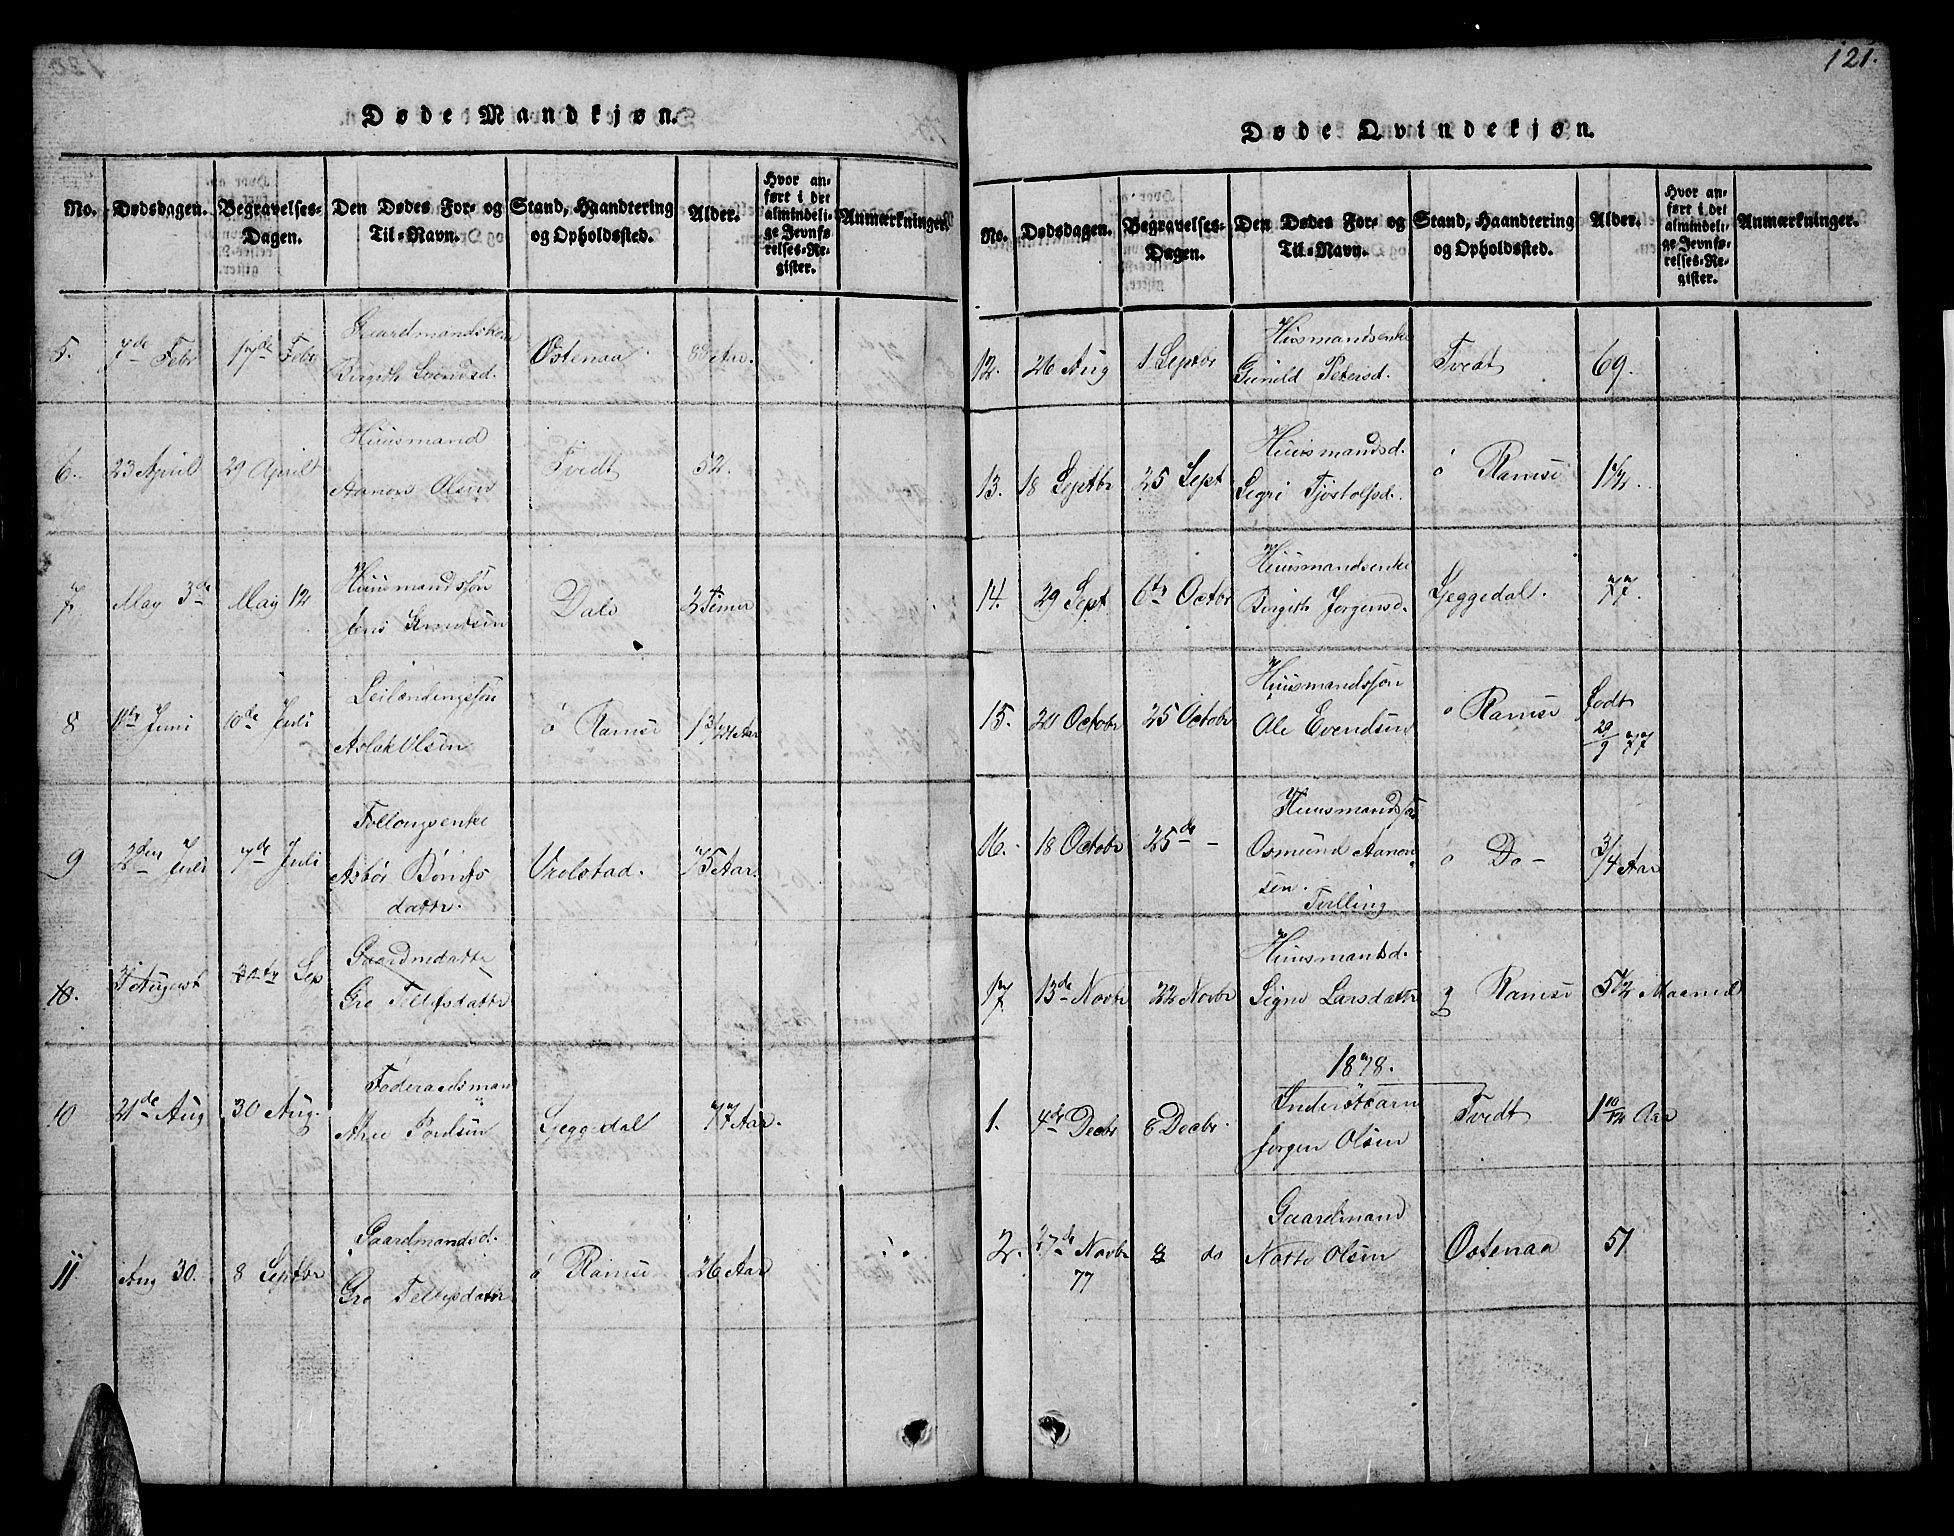 121.
Døde Mandkjøn.
No. Dødsdagen. Begravelses-Dagen. Den Dødes For- og Til-Navn. Stand, Haandtering og Opholdssted. Alder. Hvor anført i det almindelige Jevnførelses-Register. Anmærkninger.
5. 7de Febr 17de Febr Gaardmandskone Østenaa. Aar.
Birgith Svendsd.
6. 23 April 29 April Huusmand Tvedt 52.
Aanon Olsen
7 May 3de May 12 Huusmandssøn Dale Timer
Jens Knudsen
8 Juni 10de Juli Leilændingssøn ó Ramse 1 Aar
Aslak Olsen
9 2den Juli 7de Juli Vrolstad. 75 Aar.
Asbør
datter.
10. August Sep Gaardmdatter
Gro Tellefsdatter
10 21de Aug 30 Aug. Føderaadsmand Heggedal 77 Aar.
11. Aug 30. 8 Septbr Gaardmandsd. ó Ramse 26 Aar
Gro Tellefsdatter
Døde Qvindekjøn.
No. Dødsdagen. Begravelses-Dagen. Den Dødes For- og Til-Navn. Stand, Haandtering og Opholdssted. Alder. Hvor anført i det almindelige Jevnførelses-Register. Anmærkninger.
12. 26 Aug 1 Septbr Huusmandsenke Tvedt 69.
Gunild Petersd.
13. 18 Septbr 25 Sept Huusmandsd. ó Ramse 1½.
Segri Tjostolfsd.
14. 29 Sept 6te Octbr Huusmandsenke Heggedal. 77.
Birgith Jørgensd.
15. 20 Octobr 25 Octobr Huusmandssøn o Ramse født
Ole Evendsen 29/9 77
16. 18 Octobr 25de - Huusmandssøn ó Do - 3/4 Aar
Osmund Aanon-
sen.
Tvilling
17. 13de Novbr 22 Novbr Huusmandsd. Ramse 5½ Maaned
Signe Larsdatter
1878.
1. 4de Decbr 8 Decbr. Inderstbarn Tvedt 1 10/12 Aar
Jørgen Olsen
2. 27de Novbr 8 do Gaardmand Østenaa 51
77 Notto Olsen